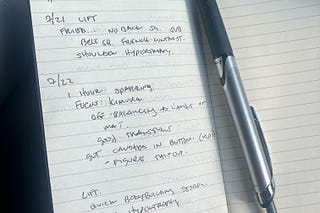 7/21 LIFT
FRIED... NO BACK SQ. SUB
BELT SQ. FRENCH CONTRAST.
SHOULDER HYPERTROPHY.
7/22
1 HOUR SPARRING.
FOCUS: KIMURA
OFF-BALANCING TO LIMBS OR
MAT.
GOOD TRANSITIONS
GOT CRUSHED IN BOTTOM
- FIGURE THIS OUT.
LIFT.
QUICK BODYBUILDING SESSION.
HYPERTROPHY